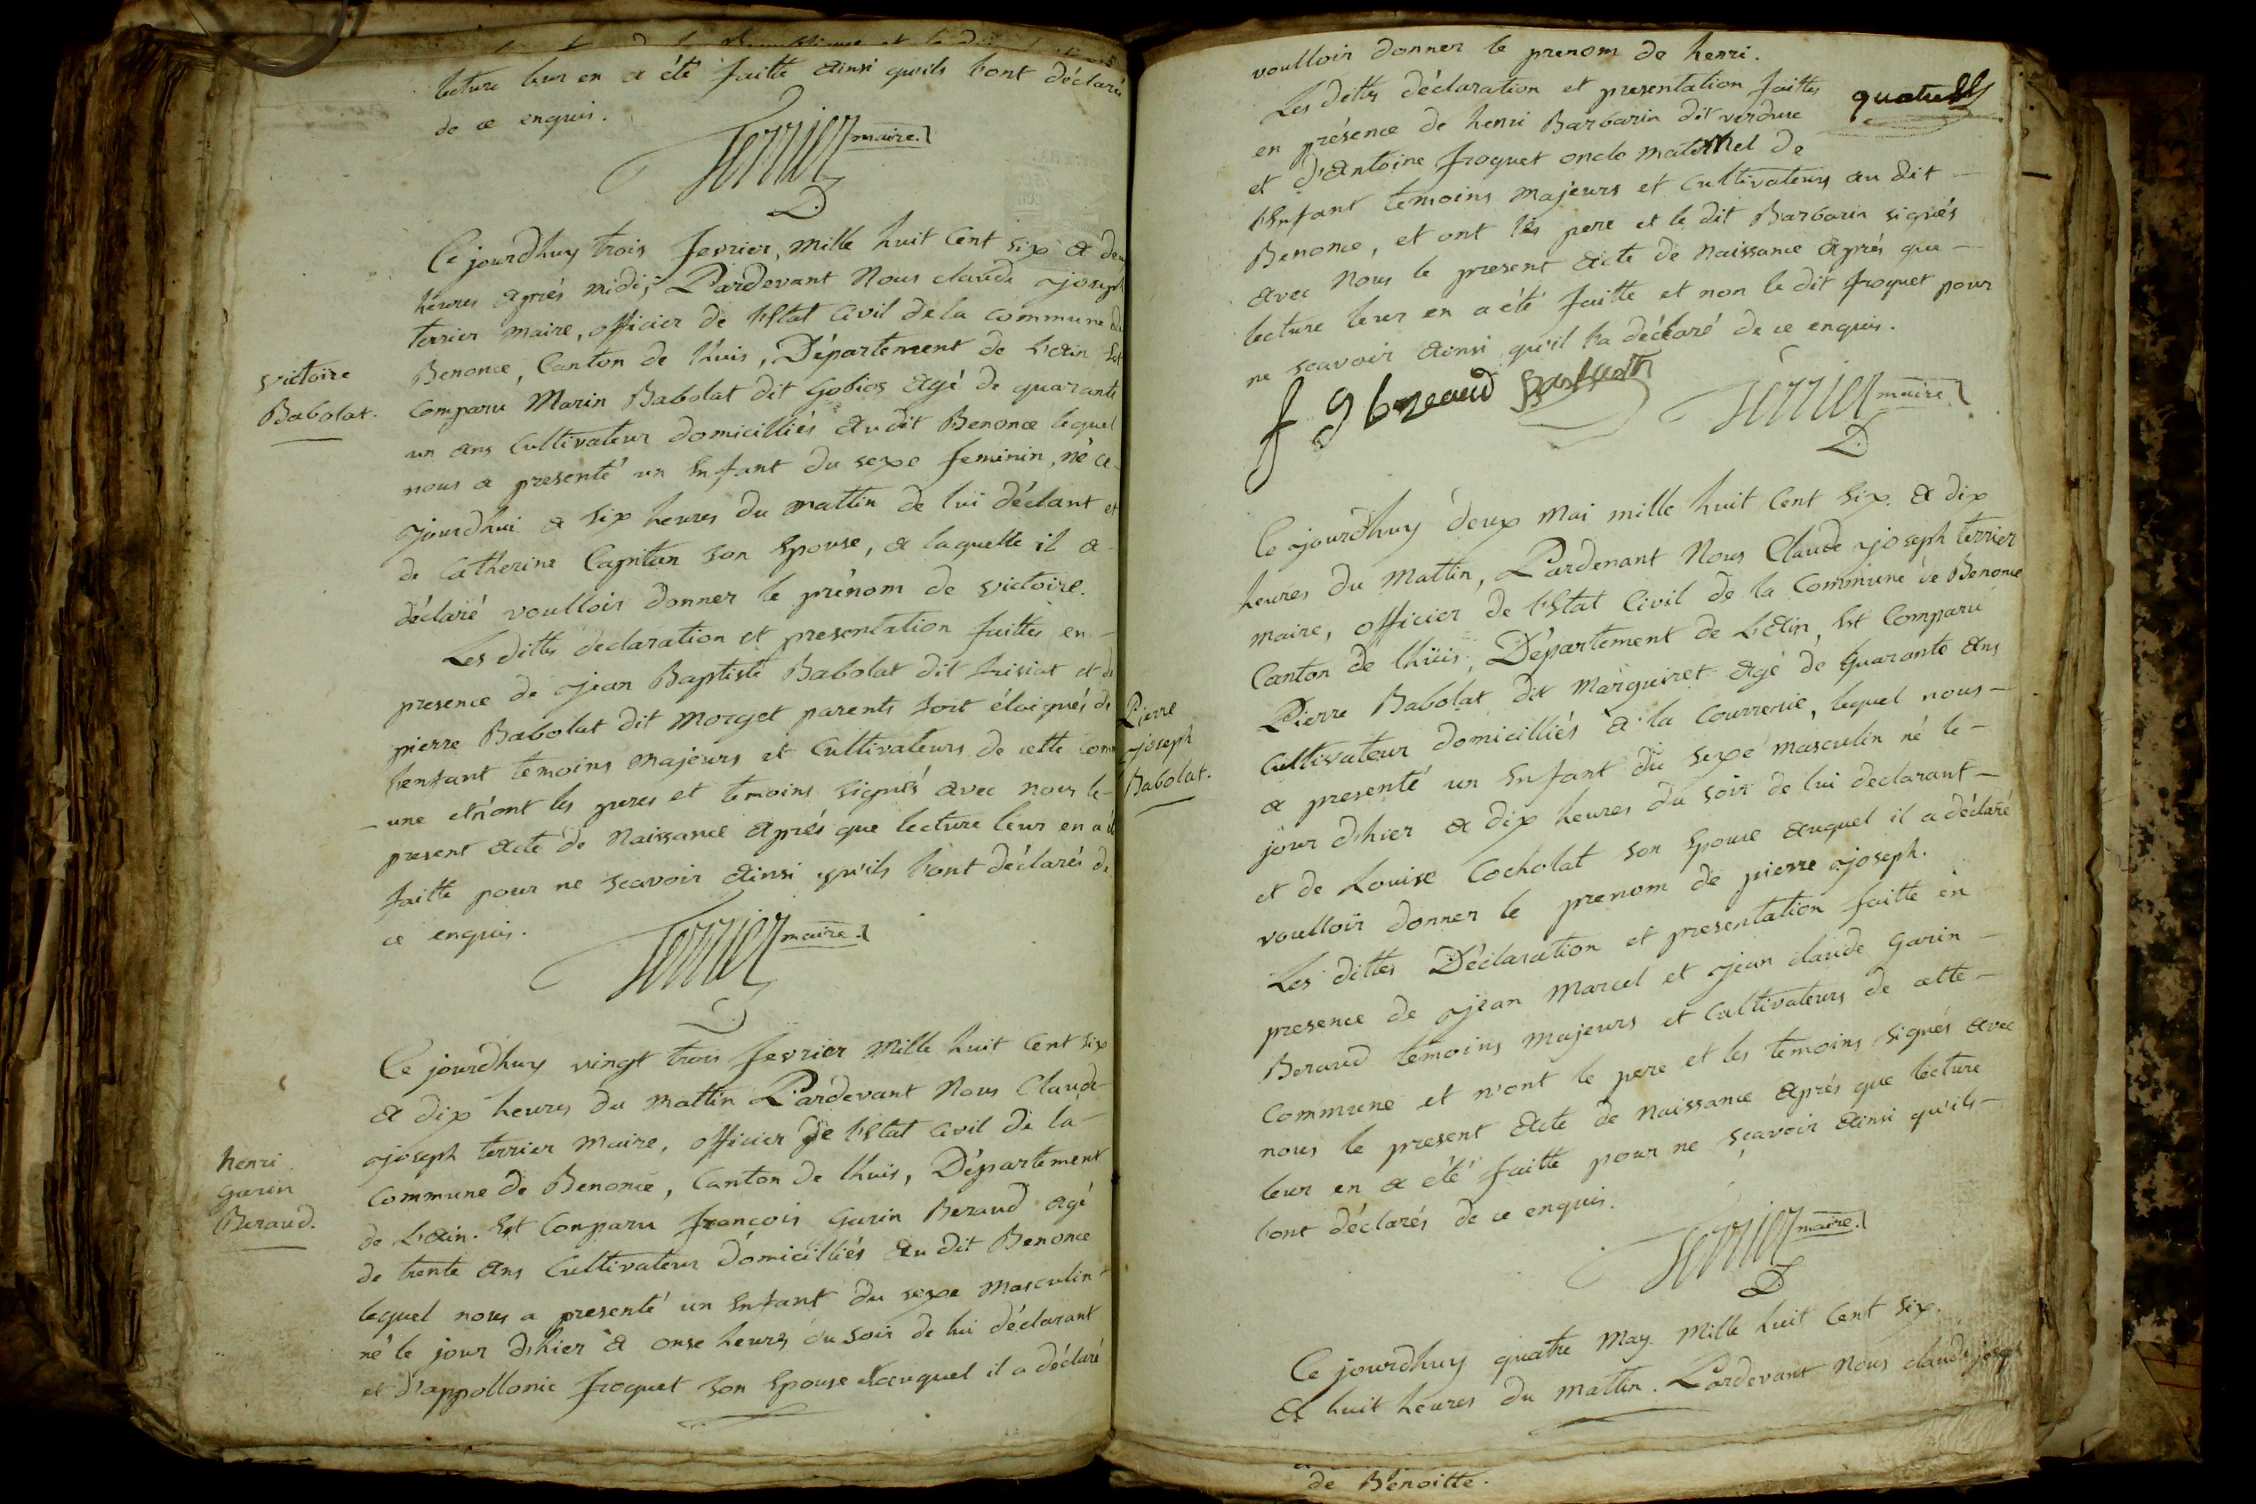 lecture leur en a été faitte ainsi qu'ils l'ont déclaré
de ce enquis.
Terrier maire.
Ce jourdhuy trois fevrier, mille huit cent six a deux
heures après midi, Pardevant Nous claude joseph
terrier maire, officier de l'Etat Civil de la commune de
Benonce, Canton de lhuis, Département de L'ain Est
victoire
Babolat.
Comparu Marin Babolat dit Gobios agé de quarante
un ans Cultivateur domicilliés au dit Benonce lequel
nous a presenté un Enfant du sexe feminin, né ce
jourdhui a six heures du mattin de lui déclant et
de Catherine Capitan son Epouse, a laquelle il a
déclaré voulloir donner le prénom de victoire.
Les dittes declaration et presentation faittes en
presence de jean Baptiste Babolat dit et de
pierre Babolat dit Morget parents fort éloignés de
l'enfant temoins majeurs et Cultivateurs de cette comm
une et n'ont les peres et temoins signés avec nous le
present acte de Naissance après que lecture leur en a été
faitte pour ne scavoir ainsi qu'ils l'ont déclarés de
ce enquis.
Terrier maire.
Ce jourdhuy vingt trois fevrier Mille huit Cent six
a dix heures du mattin Pardevant Nous Claude
joseph terrier maire, officier de l'Etat Civil de la
henri
garin
Beraud.
Commune de Benonce, Canton de lhuis, Département
de L'ain. Est Comparu françois garin Beraud agé
de trente ans Cultivateur domicilliés au dit Benonce
lequel nous a presenté un Enfant du sexe masculin
né le jour d'hier a onse heures du soir de lui déclarant
et d'appollonie froquet son Epouse auquel il a déclaré
voulloir donner le prenom de henri.
Les dittes déclaration et presentation faittes
en présence de henri Barbarin dit verdure
et d'Antoine froquet oncle maternel de
l'Enfant temoins majeurs et Cultivateurs au dit
Benonce, et ont les pere et le dit Barbarin signés
avec nous le present acte de Naissance après que
lecture leur en a été faitte et non le dit froquet pour
ne scavoir ainsi qu'il l'a déclaré de ce enquis.
f g beraud Terrier maire
Ce jourdhuy deux Mai mille huit Cent six a dix
heures du Mattin, Pardevant Nous Claude joseph terrier
maire, officier de l'Etat Civil de la Commune de Benonce
Canton de lhuis, Département de L'ain, Est Comparu
Pierre
joseph
Babolat.
Pierre Babolat dit Marguiret agé de quarante ans
Cultivateur domicilliés a la Courrerie, lequel nous
a presenté un Enfant du sexe masculin né le
jour d'hier a dix heures du soir de lui declarant
et de Louise Cocholat son Epouse auquel il a déclaré
voulloir donner le prenom de pierre joseph.
Les dittes Déclaration et presentation faitte en
presence de jean Marcel et jean claude garin
Beraud temoins majeurs et Cultivateurs de cette
Commune et n'ont le pere et les temoins signés avec
nous le present acte de naissance après que lecture
leur en a été faitte pour ne scavoir ainsi qu'ils
l'ont déclarés de ce enquis.
Terrier maire.
Ce jourdhuy quatre May Mille huit Cent six.
a huit heures du mattin. Pardevant Nous claude joseph
de Benoitte.